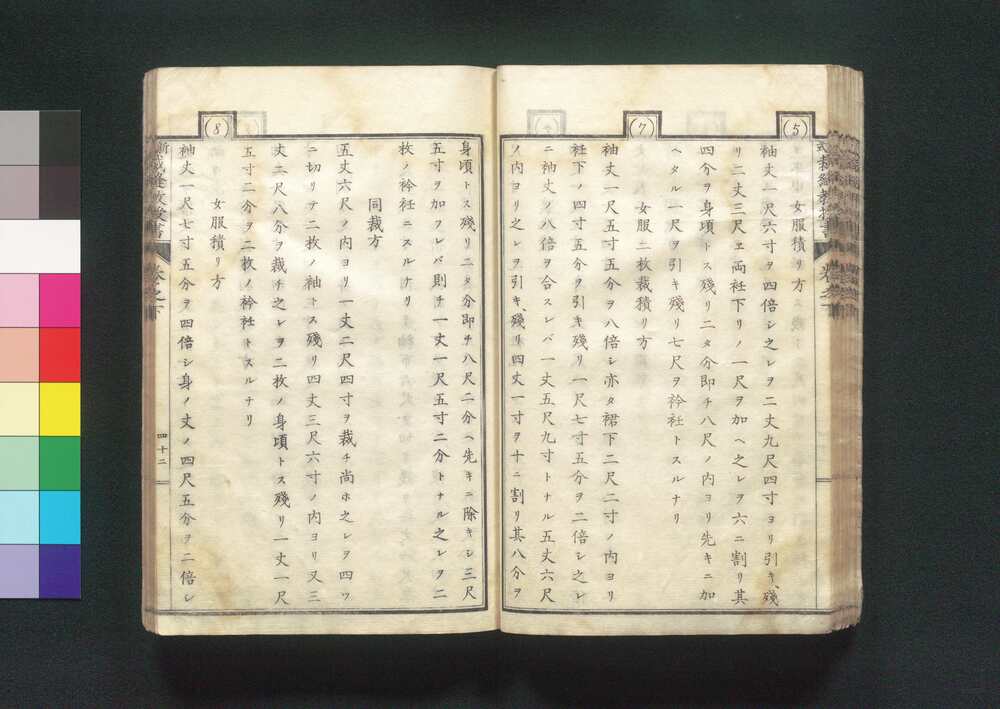 (5)
女服積リ方
袖丈一尺六寸ヲ四倍シ之レヲ二丈九尺四寸ヨリ引キ殘
リ二丈三尺ヱ両衽下リノ一尺ヲ加ヘ之レヲ六ニ割リ其
四分ヲ身頃トス殘リ二タ分即チ八尺ノ内ヨリ先キニ加
ヘタル一尺ヲ引キ殘リ七尺ヲ衿衽トスルナリ
(7)
女服二枚裁積リ方
袖丈一尺五寸五分ヲ八倍シ亦タ裙下二尺二寸ノ内ヨリ
衽下ノ四寸五分ヲ引キ殘リ一尺七寸五分ヲ二倍シ之レ
ニ袖丈ノ八倍ヲ合スレバ一丈五尺九寸トナル五丈六尺
ノ内ヨリ之レヲ引キ殘リ四丈一寸ヲ十ニ割リ其八分ヲ
身頃トス殘リニタ分即チ八尺二分ヘ先キニ除キシ三尺
五寸ヲ加フレバ則チ一丈一尺五寸二分トナル之レヲ二
枚ノ衿衽ニスルナリ
同裁方
五丈六尺ノ内ヨリ一丈二尺四寸ヲ裁チ尚ホ之レヲ四ツ
ニ切リテ二枚ノ袖トス殘リ四丈三尺六寸ノ内ヨリ又三
丈二尺八分ヲ裁チ之レヲ二枚ノ身頃トス殘リ一丈一尺
五寸二分ヲ二枚ノ衿衽トスルナリ
(8)
女服積リ方
袖丈一尺七寸五分ヲ四倍シ身ノ丈ノ四尺五分ヲ二倍シ
四十二